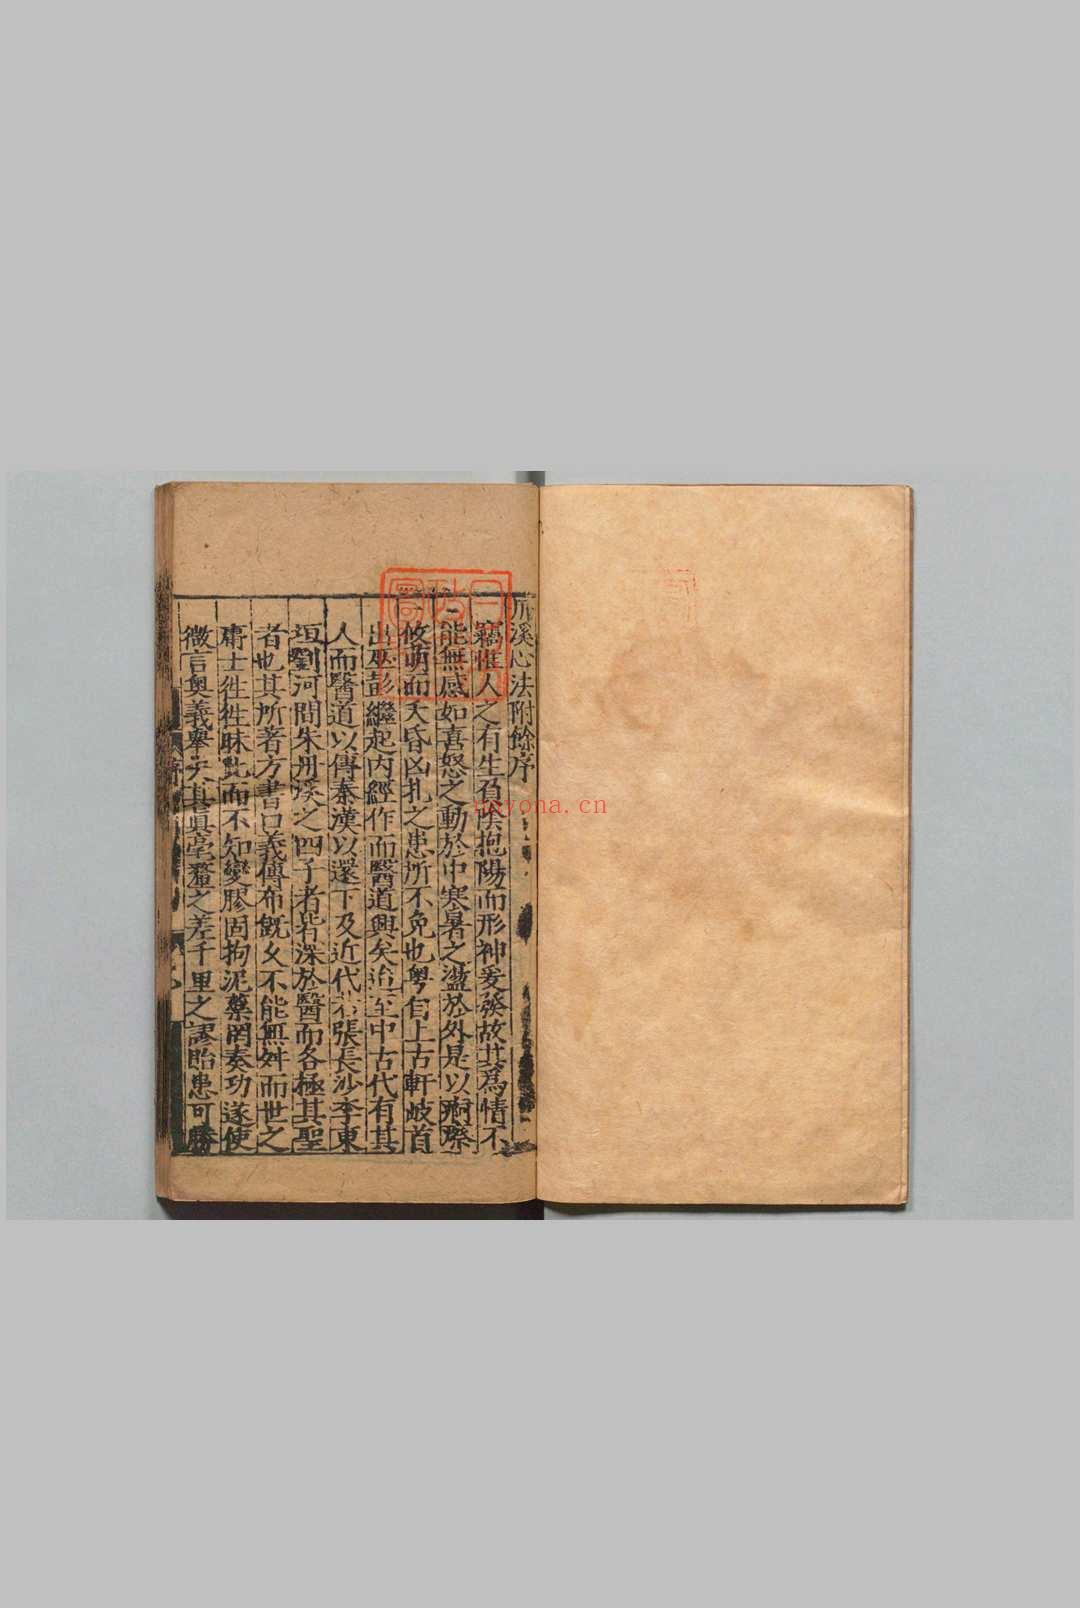 丹溪心法附餘序
竊惟人之有生負陰抱陽而形神爰發故其爲情不
能無感如喜怒之動於中寒暑之盪於外是以痾瘵
攸萌而夭昏凶札之患所不免也粤自上古軒岐首
出巫彭繼起内經作而醫道興矣迨至中古代有其
人而醫道以傳秦漢以還下及近代若張長沙李東
垣劉河間朱丹溪之四子者皆深於醫而各極其聖
者也其所著方書口義傳布旣久不能無舛而世之
庸士徃徃昧此而不知變膠固拘泥藥罔奏功遂使
微言奥義舉失其眞毫釐之差千里之謬貽患可勝
nayona.cn